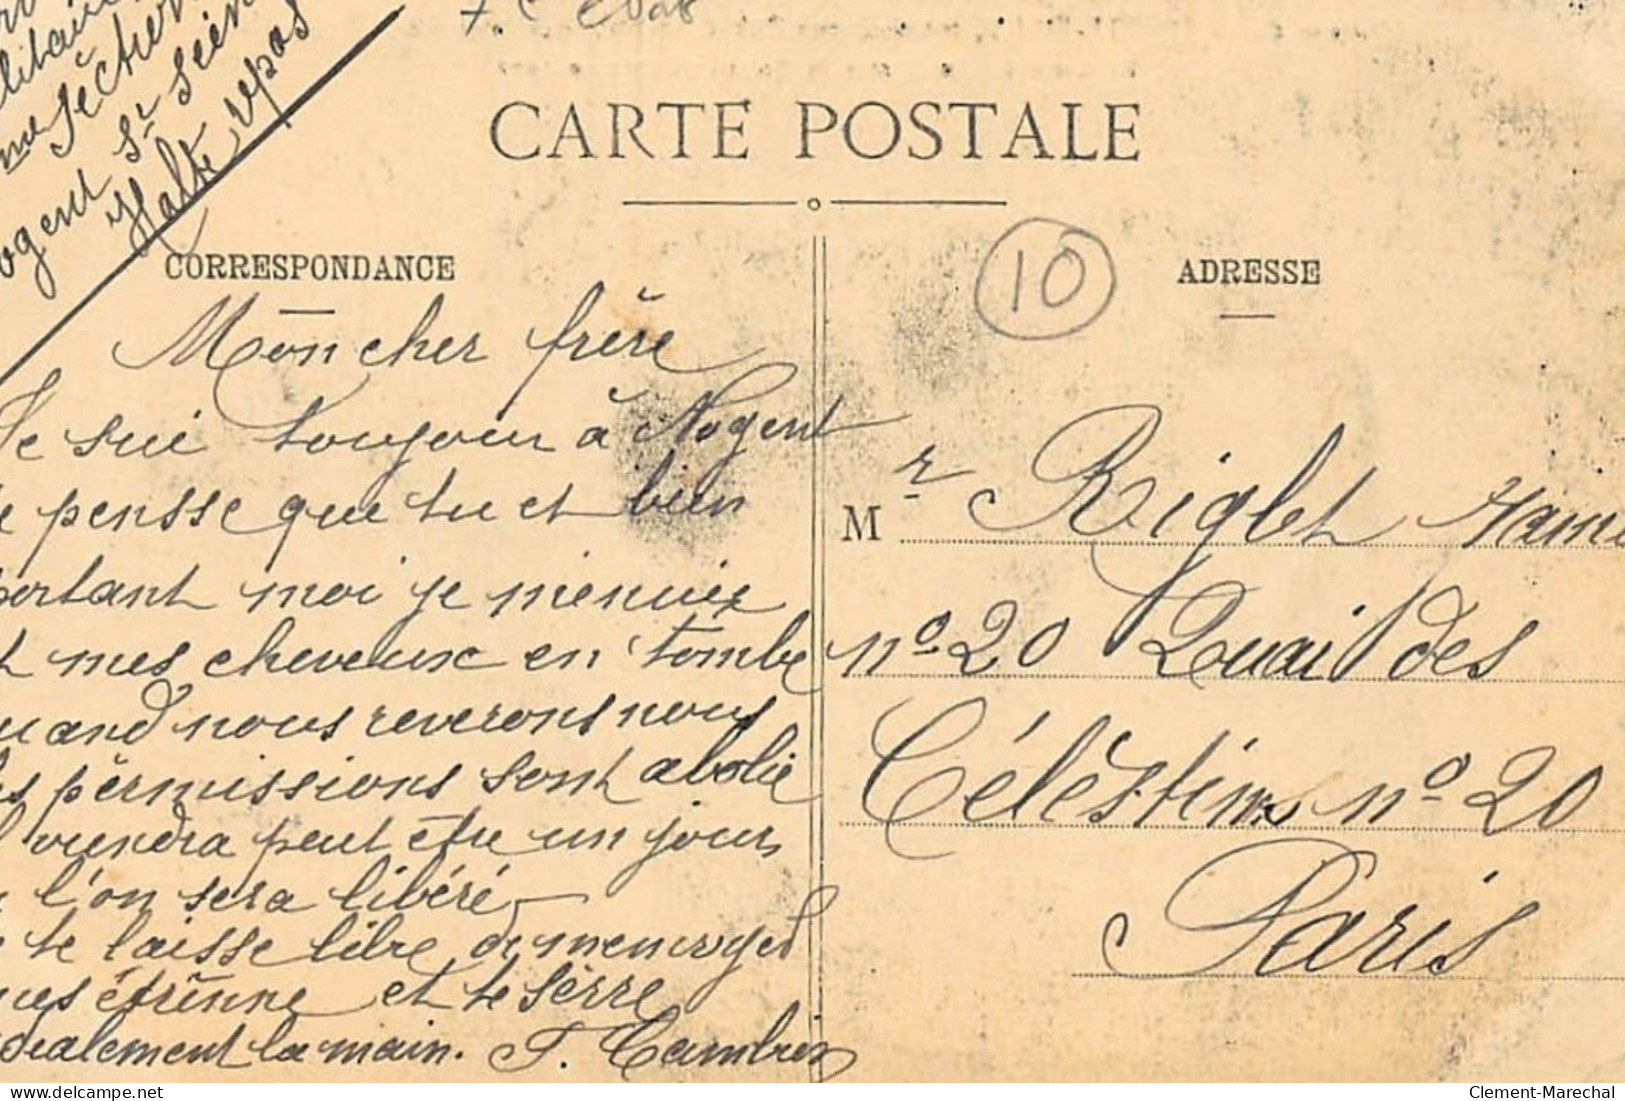 7 c
litaire
me Section
ogent Sr Seine
Halte Repos
CARTE POSTALE
CORRESPONDANCE
10
ADRESSE
Mon cher frère
Je sui toujour à Nogent
pensse que tu et bien
portant moi je m'ennuie
mes cheveux en tombe
quand nous reverons nous
les permissions sont abolie
viendra peut être un jour
l'on sera libéré
te laisse libre de m'envoyed
mes étrenne et te sèrre
idealement la main. F. Cambrex
Mr Riglet
no 20 Quai des
Célèstins no 20
Paris
delcampe.net
Clement-Marechal